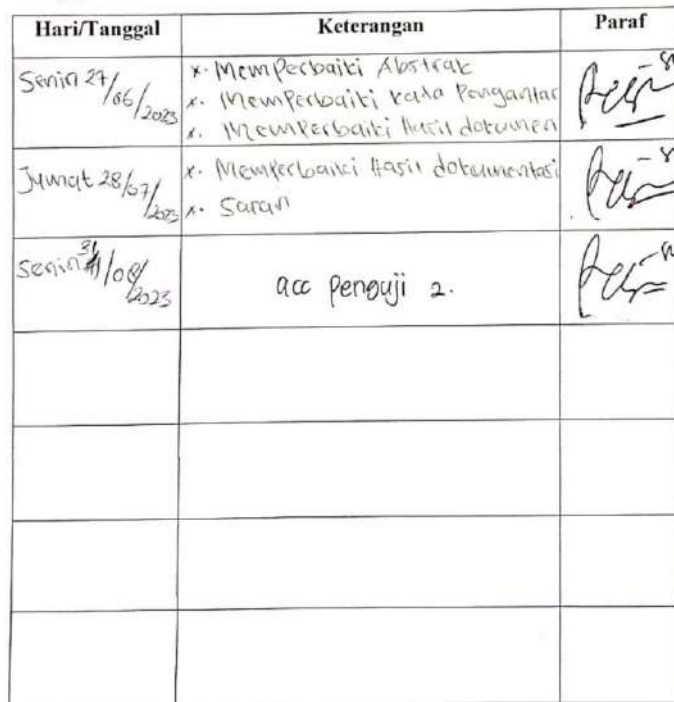 Hari/Tanggal Keterangan Paraf
Senin 27/06/2023
x. Memperbaiki Abstrak
x. Memperbaiki kata Pengantar
x. Memperbaiki Hasil dokumen
Jumat 28/07/2023
x. Memperbaiki Hasil dokumentasi
x. Saran
Senin 31/08/2023
acc penguji 2.